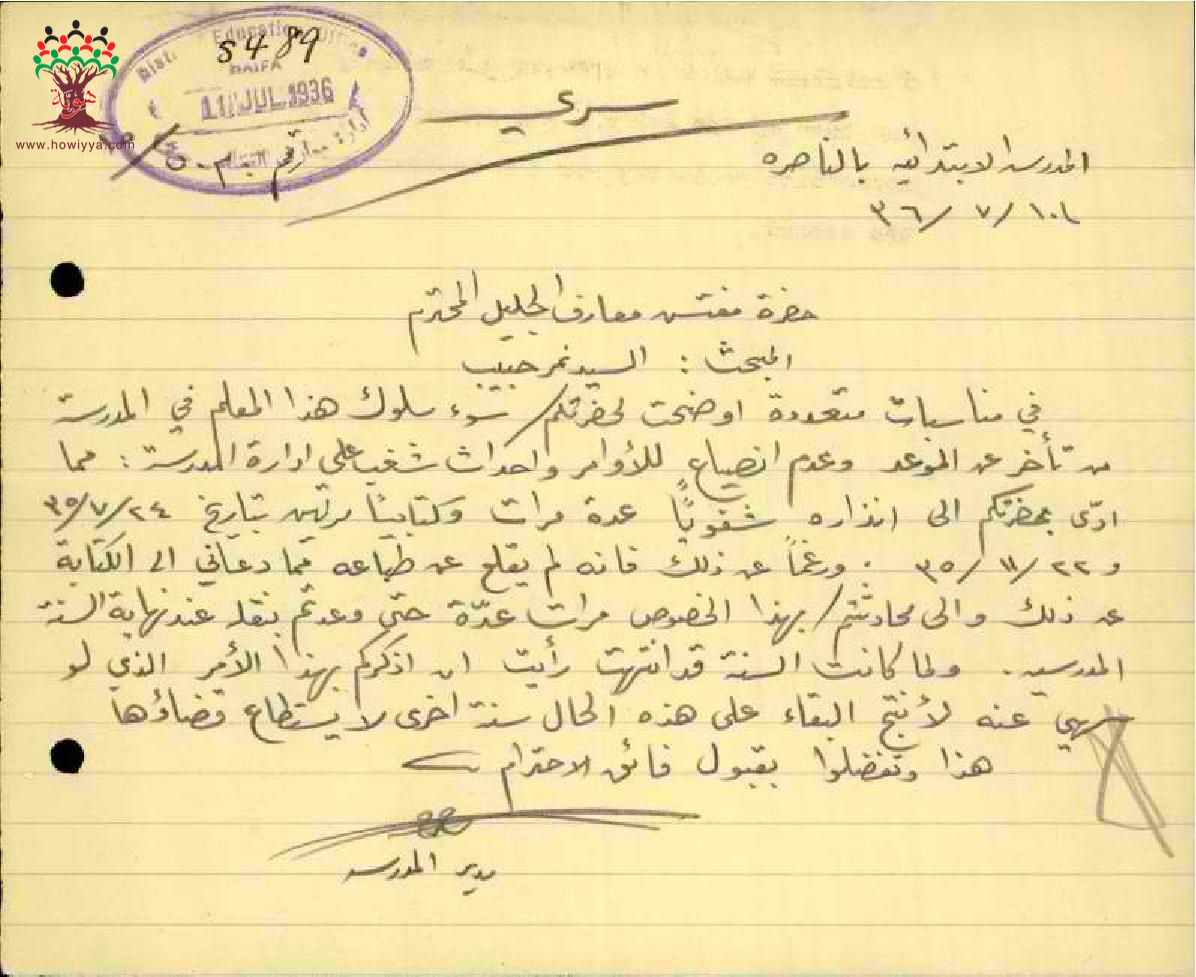 5489
District Education Office
HAIFA
11 JUL 1936
ادارة معارف
www.howiyya.com
سري
المدرسة الابتدائيه بالناصره
١٠/ ٧/ ٣٦
حضرة مفتش معارف الجليل المحترم
المبحث : السيد نمر حبيب
في مناسبات متعددة اوضحت لحضرتكم سوء سلوك هذا المعلم في المدرسة
من تأخر عن الموعد وعدم انصياع للأوامر واحداث شغب على ادارة المدرسة : مما
ادّى بحضرتكم الى انذاره شفويًا عدة مرات وكتابيًا مرتين بتاريخ ٢٤/ ٧/ ٣٥
و ٢٢/ ١١/ ٣٥ . ورغمًا عن ذلك فانه لم يقلع عن طباعه مما دعاني الى الكتابة
عن ذلك والى محادثتكم بهذا الخصوص مرات عدّة حتى وعدتم بنقله عند نهاية السنة
المدرسيه . ولما كانت السنة قد انتهت رأيت ان اذكركم بهذا الأمر الذي لو
سهي عنه لأنتج البقاء على هذه الحال سنة اخرى لا يستطاع قضاؤها
هذا وتفضلوا بقبول فائق الاحترام
مدير المدرسه